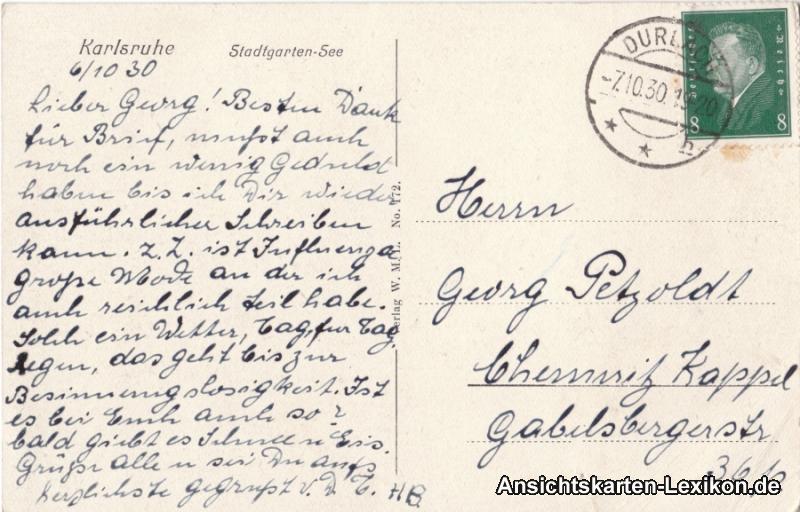 Karlsruhe Stadtgarten-See
6/10 30
Lieber Georg! Besten Dank
für Brief, mußt auch
noch ein wenig Geduld
haben bis ich Dir wieder
ausführlicher Schreiben
kann. z. Z. ist Influenza
große Mode an der ich
auch reichlich teil habe.
Solch ein Wetter, Tag für Tag
Regen, das geht bis zur
Besinnungslosigkeit. Ist
es bei Euch auch so?
bald giebt es Schnee u Eis.
Grüße alle u sei Du aufs
herzlichste gegrüßt v. D. T. HB.
Verlag W. M. L. No. 172.
DURLACH
-7.10.30.
Deutsches Reich
8 8
Herrn
Georg Petzoldt
Chemnitz Kappel
Gabelsbergerstr
Ansichtskarten-Lexikon.de